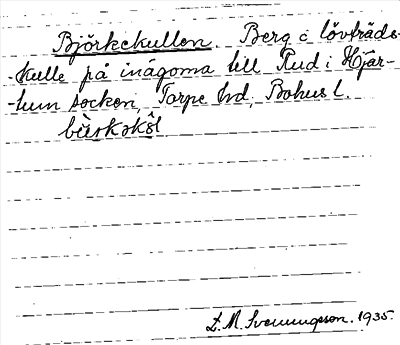 Björkekullen. Berg o lövträds-
-kulle på inägorna till Rud i Hjär-
-tum socken, Torpe hd. Bohus l.
bı̀erkəkôl
L. M. Svenungsson. 1935.